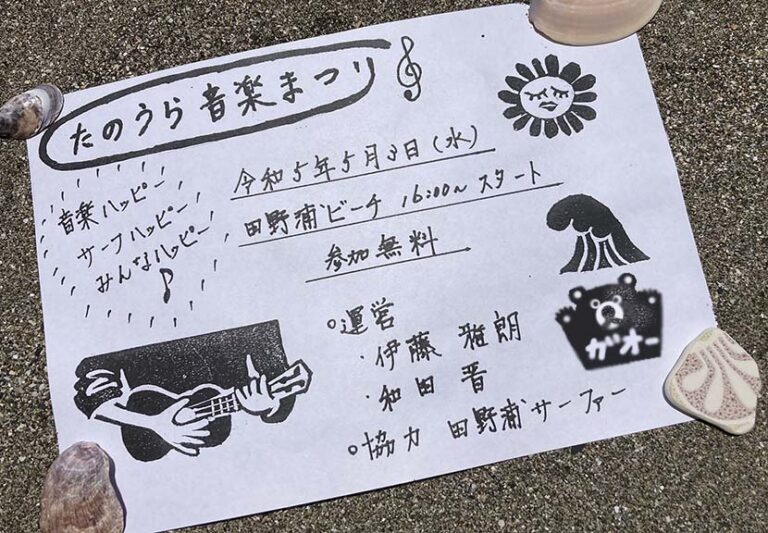 たのうら音楽まつり
令和5年5月3日(水)
田野浦ビーチ 16:00~スタート
参加無料
音楽ハッピー
サーフハッピー
みんなハッピー
♪
○運営
・伊藤 雅朗
・和田 晋
○協力 田野浦サーファー
がオー